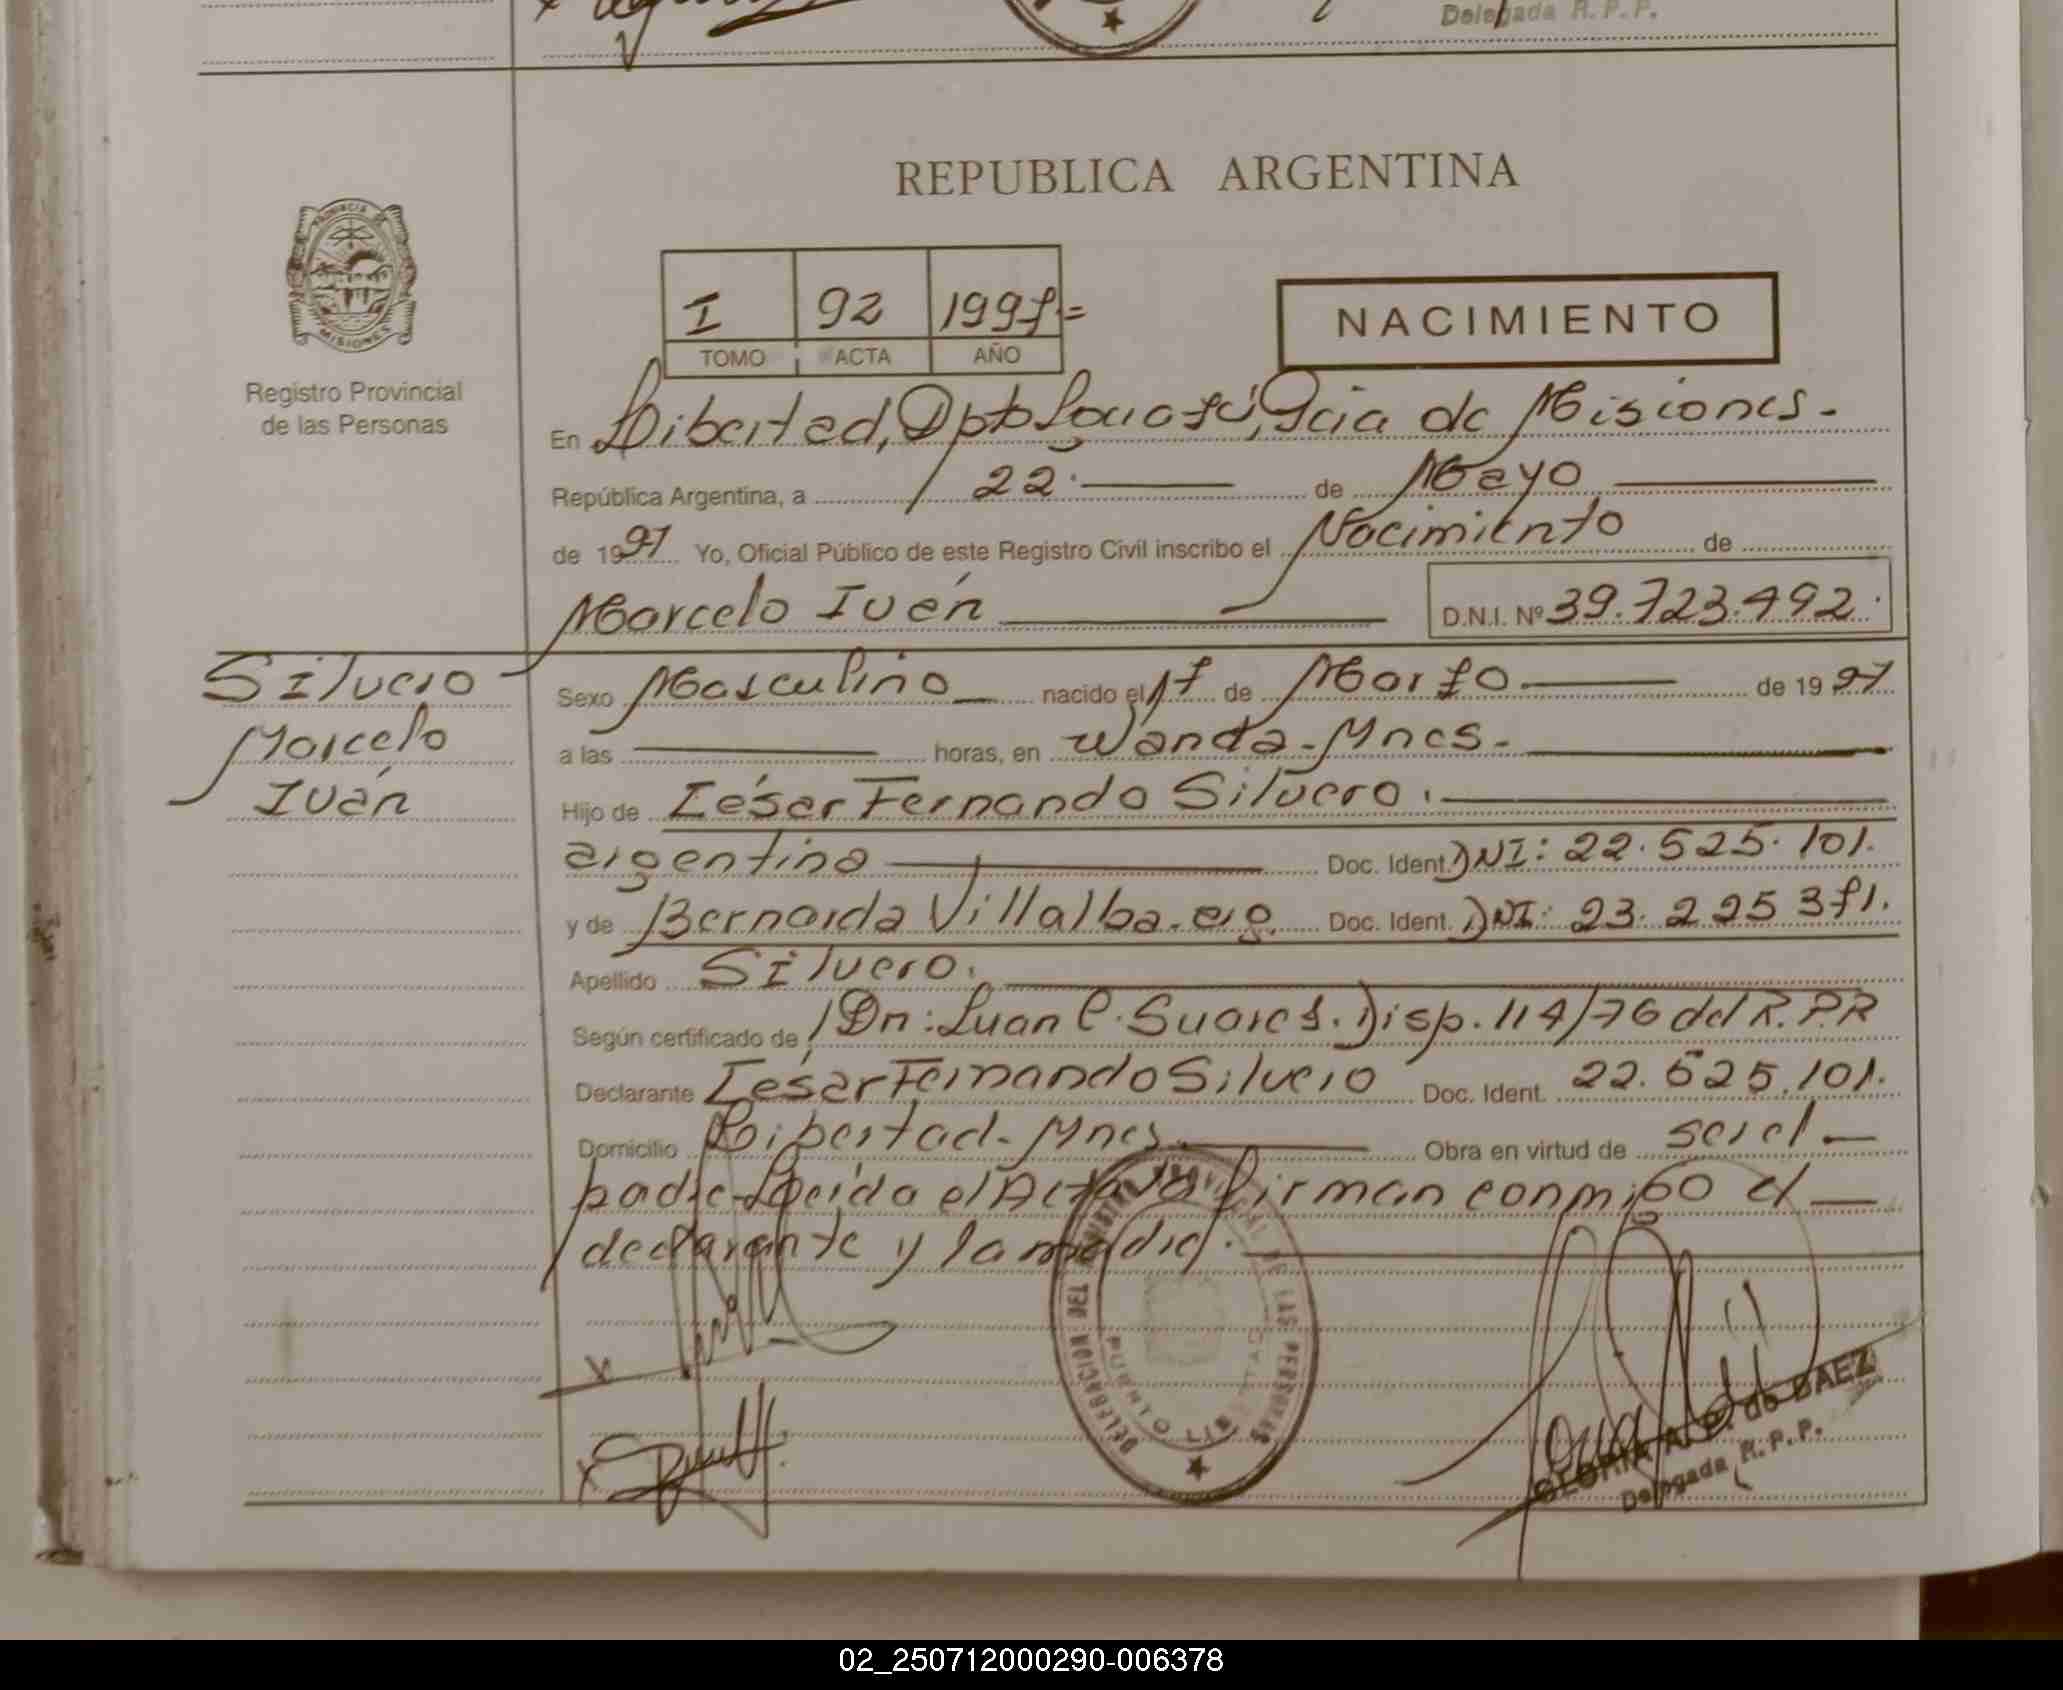 Delegada R.P.P.
REPUBLICA ARGENTINA
PROVINCIA DE
MISIONES
Registro Provincial
de las Personas
I 92 1997=
TOMO ACTA AÑO
NACIMIENTO
En Libertad, Dpto Iguazú, Pcia de Misiones.-
República Argentina, a 22 de Mayo
de 1997 Yo, Oficial Público de este Registro Civil inscribo el Nacimiento de
Marcelo Iván D.N.I. Nº 39.723.492.
Silvero
Marcelo
Iván
Sexo Masculino nacido el 17 de Marzo de 1997
a las horas, en Wanda-Mnes.
Hijo de César Fernando Silvero.
argentino Doc. Ident. DNI: 22.525.101.
y de Bernarda Villalba-arg. Doc. Ident. DNI: 23.225371.
Apellido Silvero.
Según certificado de Dn: Juan C. Suares. Disp. 114/76 del R.P.P
Declarante César Fernando Silvero Doc. Ident. 22.525.101.
Domicilio Libertad-Mnes. Obra en virtud de ser el
padre-Leída el Acta la firman conmigo el
declarante y la madre.
DELEGACION DEL REGISTRO PROVINCIAL DE LAS PERSONAS
PUERTO LIBERTAD
GLORIA A. P. de BAEZ
Delegada R.P.P.
02_250712000290-006378